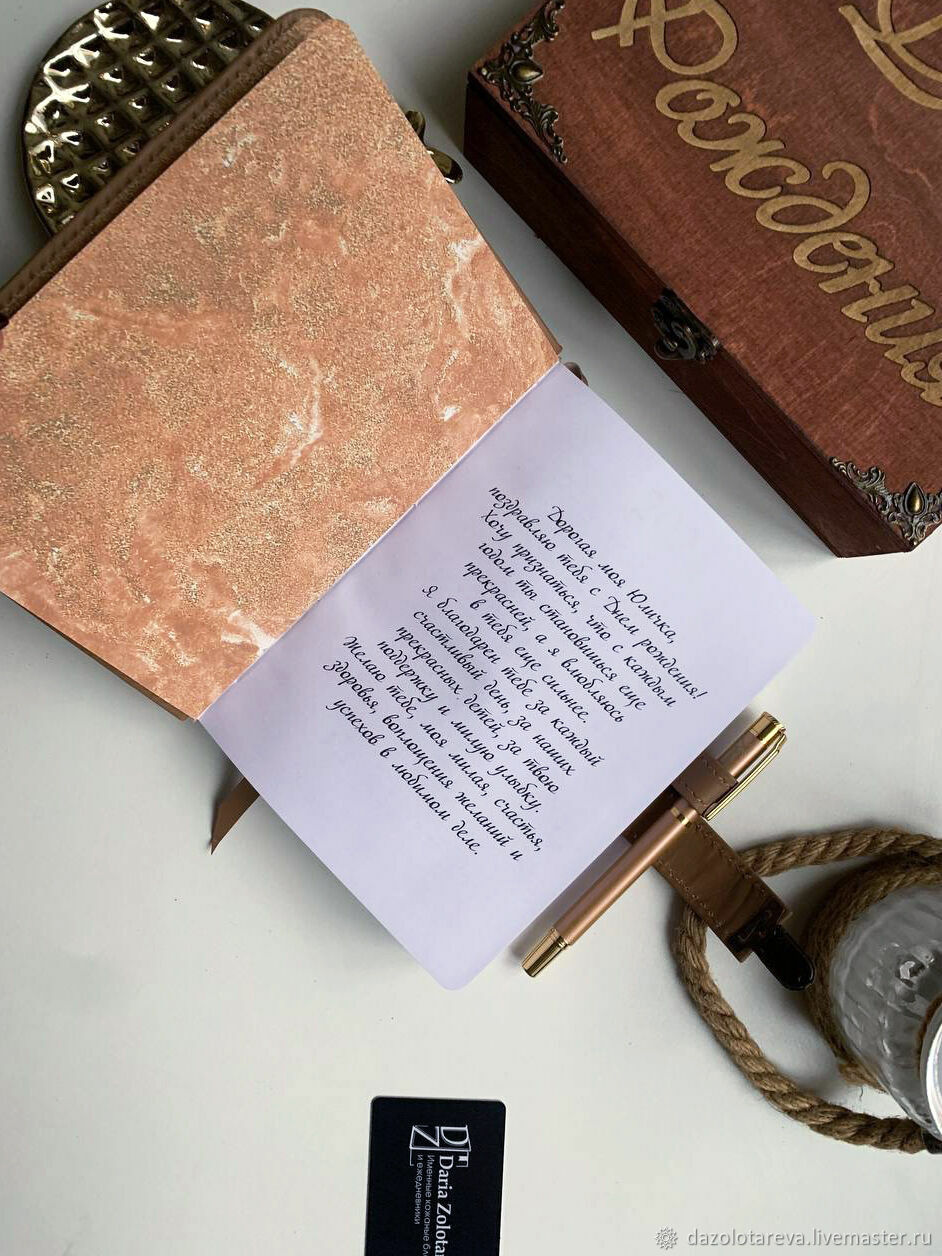 Рождения
Дорогая моя Юличка,
поздравляю тебя с Днем рождения!
Хочу признаться, что с каждым
годом ты становишься еще
прекрасней, а я влюбляюсь
в тебя еще сильнее.
Я благодарен тебе за каждый
счастливый день, за наших
прекрасных детей, за твою
поддержку и милую улыбку.
Желаю тебе, моя милая, счастья,
здоровья, воплощения желаний и
успехов в любимом деле.
DZ
Daria Zolota
Именные кожаные бл
и ежедневники
dazolotareva.livemaster.ru